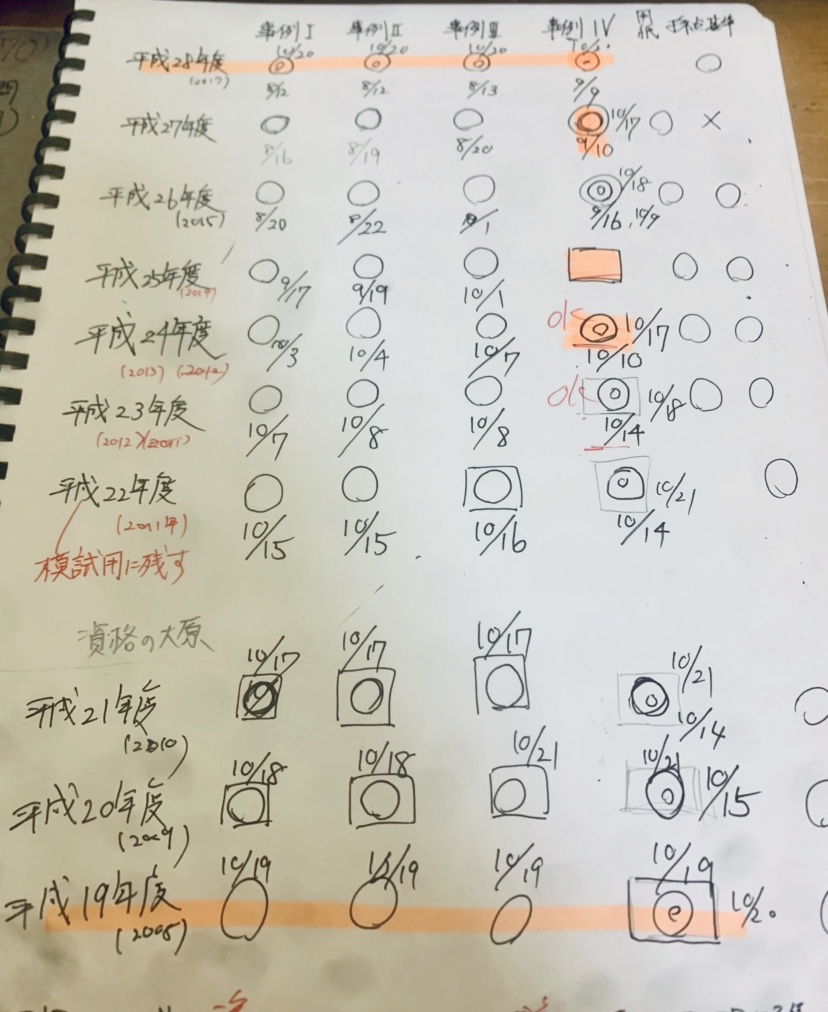 事例Ⅰ 事例Ⅱ 事例Ⅲ 事例Ⅳ 用紙 採点基準
10/20 10/20 10/20 10/20
平成28年度 ◎ ◎ ◎ ◎ ○
(2017) 8/12 8/12 8/13 9/9
平成27年度 ◎ ○ ○ ◎ 10/17 ○ ×
8/16 8/19 8/20 9/10
平成26年度 ○ ○ ○ ◎ 10/18 ○ ○
(2015) 8/20 8/22 9/16, 10/9
平成25年度 ○ 9/17 ○ ○ ○ ○
(2014) 9/19 10/1
平成24年度 ○ 10/3 ○ ○ ok ◎ 10/17 ○ ○
(2013) (2012) 10/4 10/7 10/10
平成23年度 ○ ○ ○ ok ◎ 10/18 ○ ○
(2012) (2011) 10/7 10/8 10/8 10/14
平成22年度 ○ ○ ○ ◎ 10/21 ○
(2011年) 10/15 10/15 10/16 10/14
模試用に残す
資格の大原
10/17 10/17 10/17 10/21
平成21年度 ○ ○ ◎ 10/14 ○
(2010)
10/18 10/18 10/21 10/21
平成20年度 ○ ○ ○ ◎ 10/15 ○
(2009)
10/19 10/19 10/19 10/19
平成19年度 ○ ○ ○ ◎ 10/20
(2008)